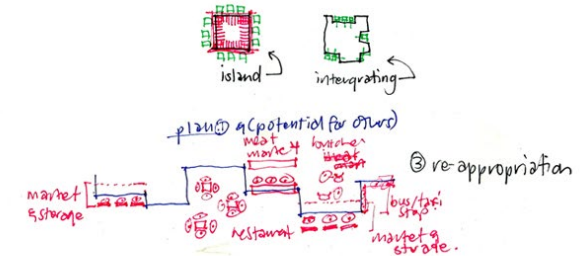 island
integrating
plan ① & (potential for others)
meat
market
butcher
meat
③ re-appropriation
market
& storage
restaurant
bus/taxi
stop
market &
storage.